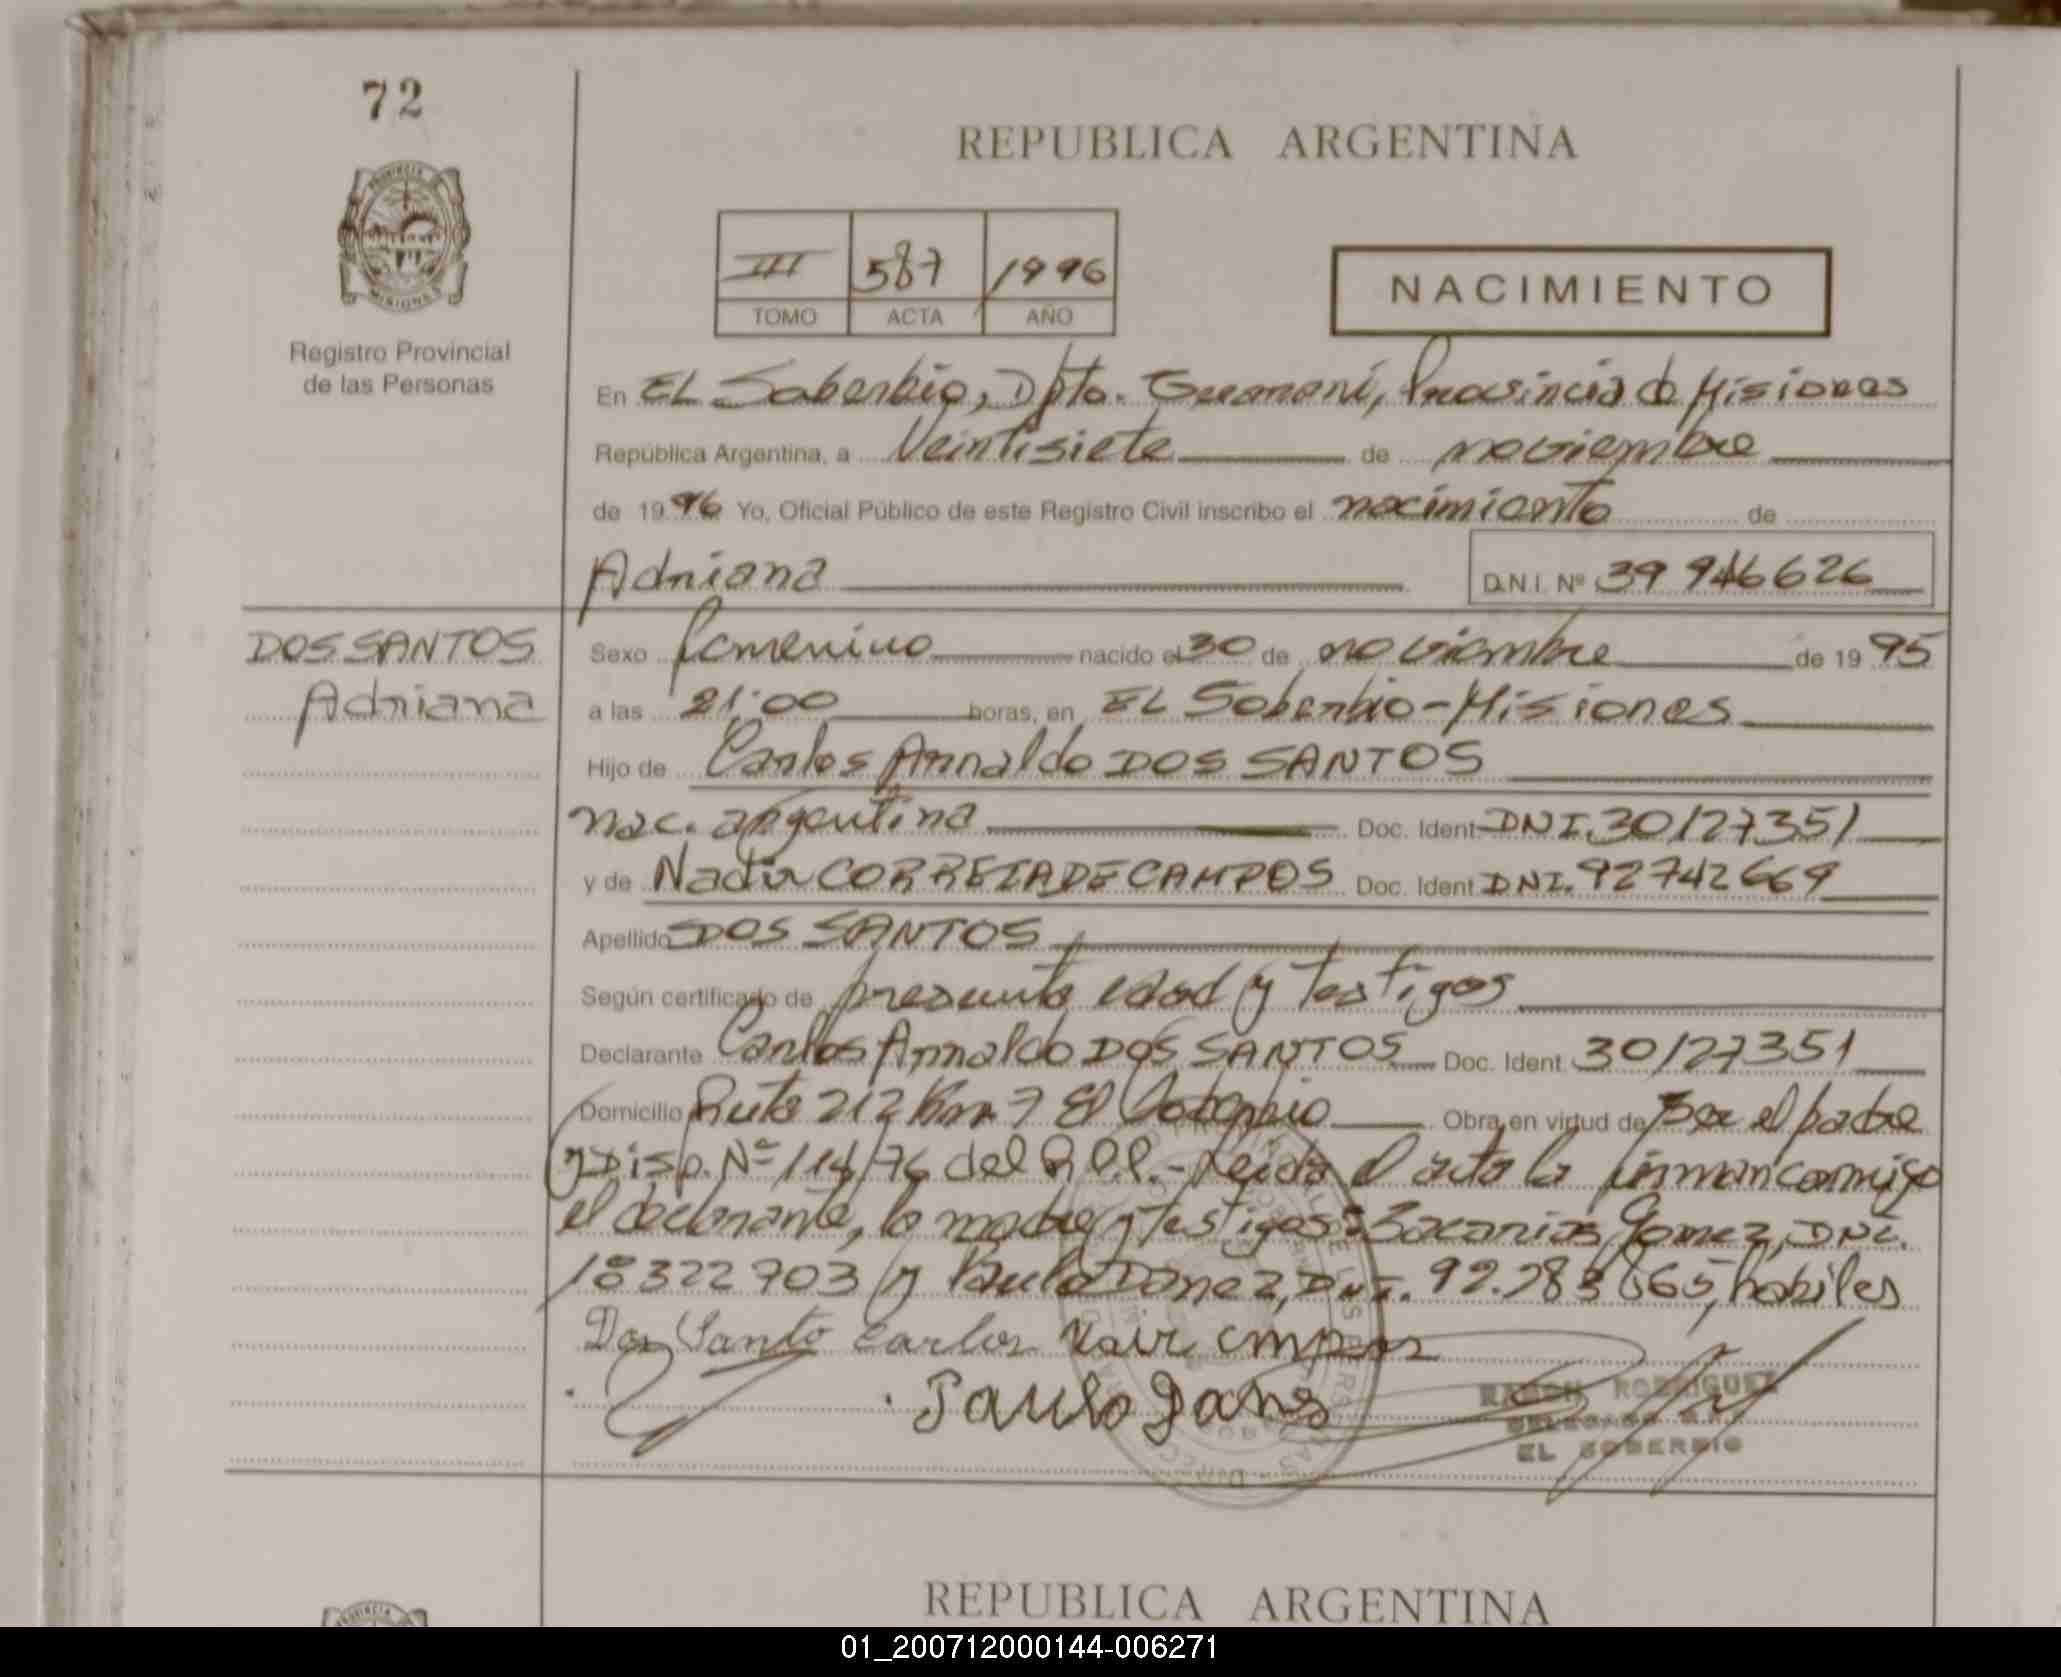 72
REPUBLICA ARGENTINA
III 587 1996
TOMO ACTA AÑO
NACIMIENTO
PROVINCIA DE
MISIONES
Registro Provincial
de las Personas
En EL Soberbio, Dpto. Guaraní, Provincia de Misiones
República Argentina, a Veintisiete de noviembre
de 1996 Yo, Oficial Público de este Registro Civil inscribo el nacimiento de
Adriana D.N.I. Nº 39 946626
DOS SANTOS
Adriana
Sexo femenino nacido el 30 de noviembre de 1995
a las 21:00 horas, en EL Soberbio - Misiones
Hijo de Carlos Arnaldo DOS SANTOS
nac. argentina Doc. Ident. DNI. 30127351
y de Nadir CORREIA DE CAMPOS Doc. Ident. DNI. 92742669
Apellido DOS SANTOS
Según certificado de presunta edad y testigos
Declarante Carlos Arnaldo DOS SANTOS Doc. Ident. 30127351
Domicilio Ruta 212 Km 7 El Soberbio Obra en virtud de Ser el padre
y Disp. Nº 114/76 del R.P.P.- Leida el acta la firman conmigo
el declarante, la madre y testigos: Zacarias Gomez, DNI.
18322703 y Paulo Danez, DNI. 92.283865, habiles
Dos Santo Carlos
Paulo Dans
RAMON RODRIGUEZ
DELEGADO R.P.P.
EL SOBERBIO
REPUBLICA ARGENTINA
01_200712000144-006271